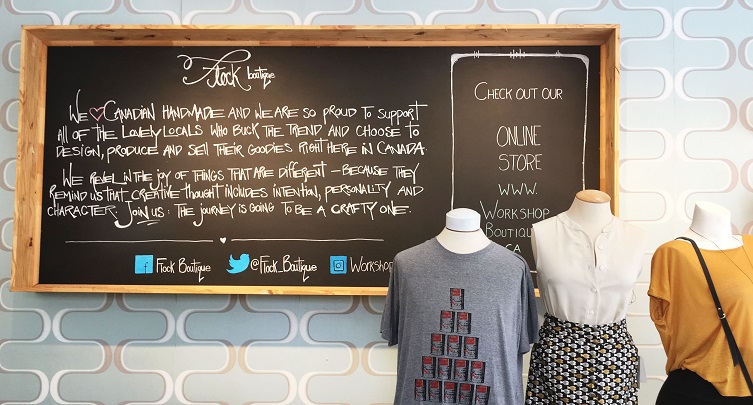 Flock boutique
We ♡ Canadian handmade and we are so proud to support
all of the lovely locals who buck the trend and choose to
design, produce and sell their goodies right here in Canada.
We revel in the joy of things that are different – because they
remind us that creative thought includes intention, personality and
character. Join us: the journey is going to be a crafty one.
Flock Boutique
@Flock_Boutique
Workshop
Check out our
online
store
www.
Workshop
Boutique
.ca